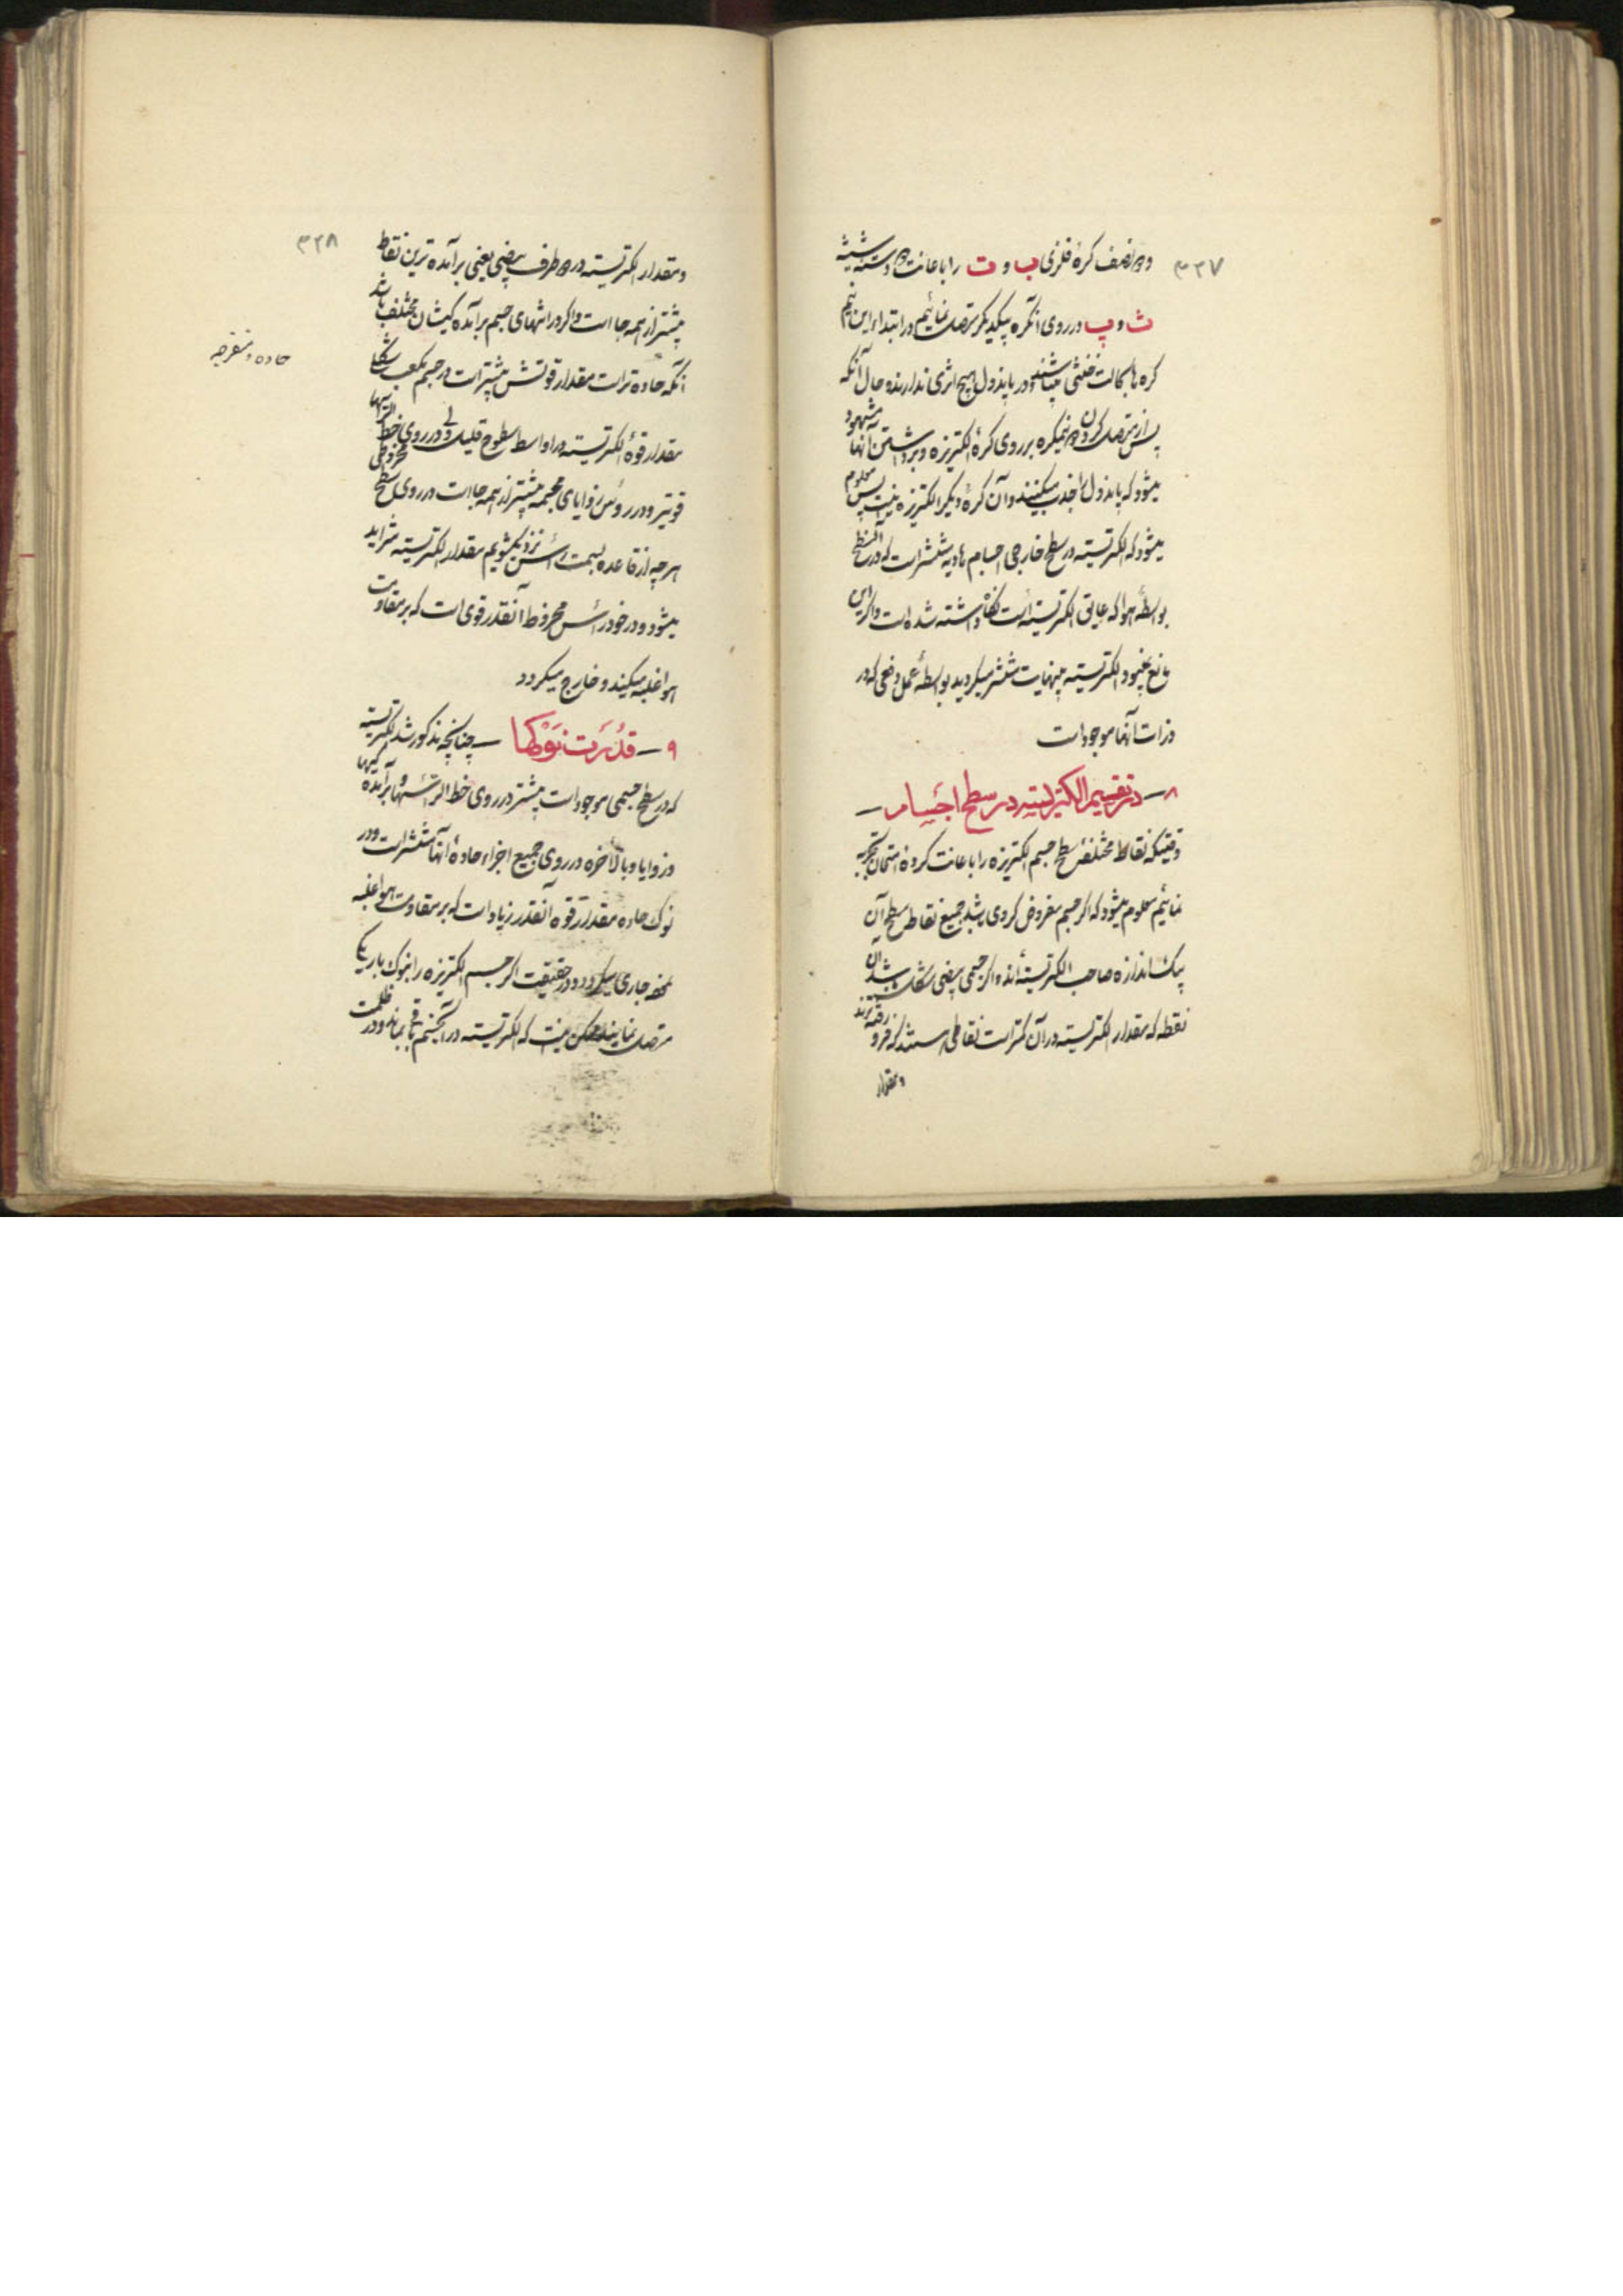 ۳۲۷
و دو نصف کرهٔ فلزی ب و ت را باعانت دو دسته شیشه
ث و پ در روی آنکره بیکدیکر متصل نمائیم در ابتداء این نیم
کره ها بحالت خنثی میباشند و در پاندول هیچ اثری ندارند و حال آنکه
پس از متصل کردن دو نیمکره بر روی کرهٔ الکتریزه و برداشتن آنها مشهود
میشود که پاندول را جذب میکنند و آن کرهٔ دیکر الکتریزه نیست پس معلوم
میشود که الکتریسیته در سطح خارجی اجسام هادیه منتشر است که در آنسطح
بواسطهٔ هوا که عایق الکتریسیته است نکاه داشته شده است و اکر این
مانع نمیبود الکتریسیته بینهایت منتشر میکردید بواسطهٔ عمل دفعی که در
ذرات آنها موجود است
۸ – در تقسیم الکتریسیته در سطح اجسام –
وقتیکه نقاط مختلفهٔ سطح جسم الکتریزه را باعانت کردهٔ امتحان تجربه
نمائیم معلوم میشود که اکر جسم مفروض کروی باشد جمیع نقاط سطح آن
بیک اندازه صاحب الکتریسیته‌اند و اکر جسمی بیضی شکل باشد آن
نقطه که مقدار الکتریسیته در آن کمتر است نقاطی هستند که فرو رفته‌ترند
و مقدار
۳۲۸
و مقدار الکتریسیته در دو طرف بیضی یعنی برآمده ترین نقاط
بیشتر از همه جا است و اکر در انتهای جسم برآمده کیشان مختلف باشد
آنکه حاده تر است مقدار قوتش بیشتر است در جسم مکعب شکل
حاده و منفرجه
مقدار قوهٔ الکتریسیته در اواسط سطوح قلیل ولی در روی خط الراسها
قویتر و در رؤس زوایای مجسمه بیشتر از همه جا است در روی سطح مخروطی
هر چه از قاعده بسمت رأس نزدیکشویم مقدار الکتریسیته متزاید
میشود و در خود رأس مخروط آنقدر قوی است که بر مقاومت
هوا غلبه میکند و خارج میکردد
۹ – قدرت نوکها – چنانچه مذکور شد الکتریسیته
که در سطح جسمی موجود است بیشتر در روی خط الراسها و برآمدکیها
و زوایا و بالاخره در روی جمیع اجزاء حادهٔ آنها منتشر است و در
نوک حاده مقدار قوه آنقدر زیاد است که بر مقاومت هوا غلبه
نموده جاری میکردد و در حقیقت اکر جسم الکتریزه را بنوک باریکی
متصل نمایند ممکن نیست که الکتریسیته در آنجسم باقی بماند و در ظلمت